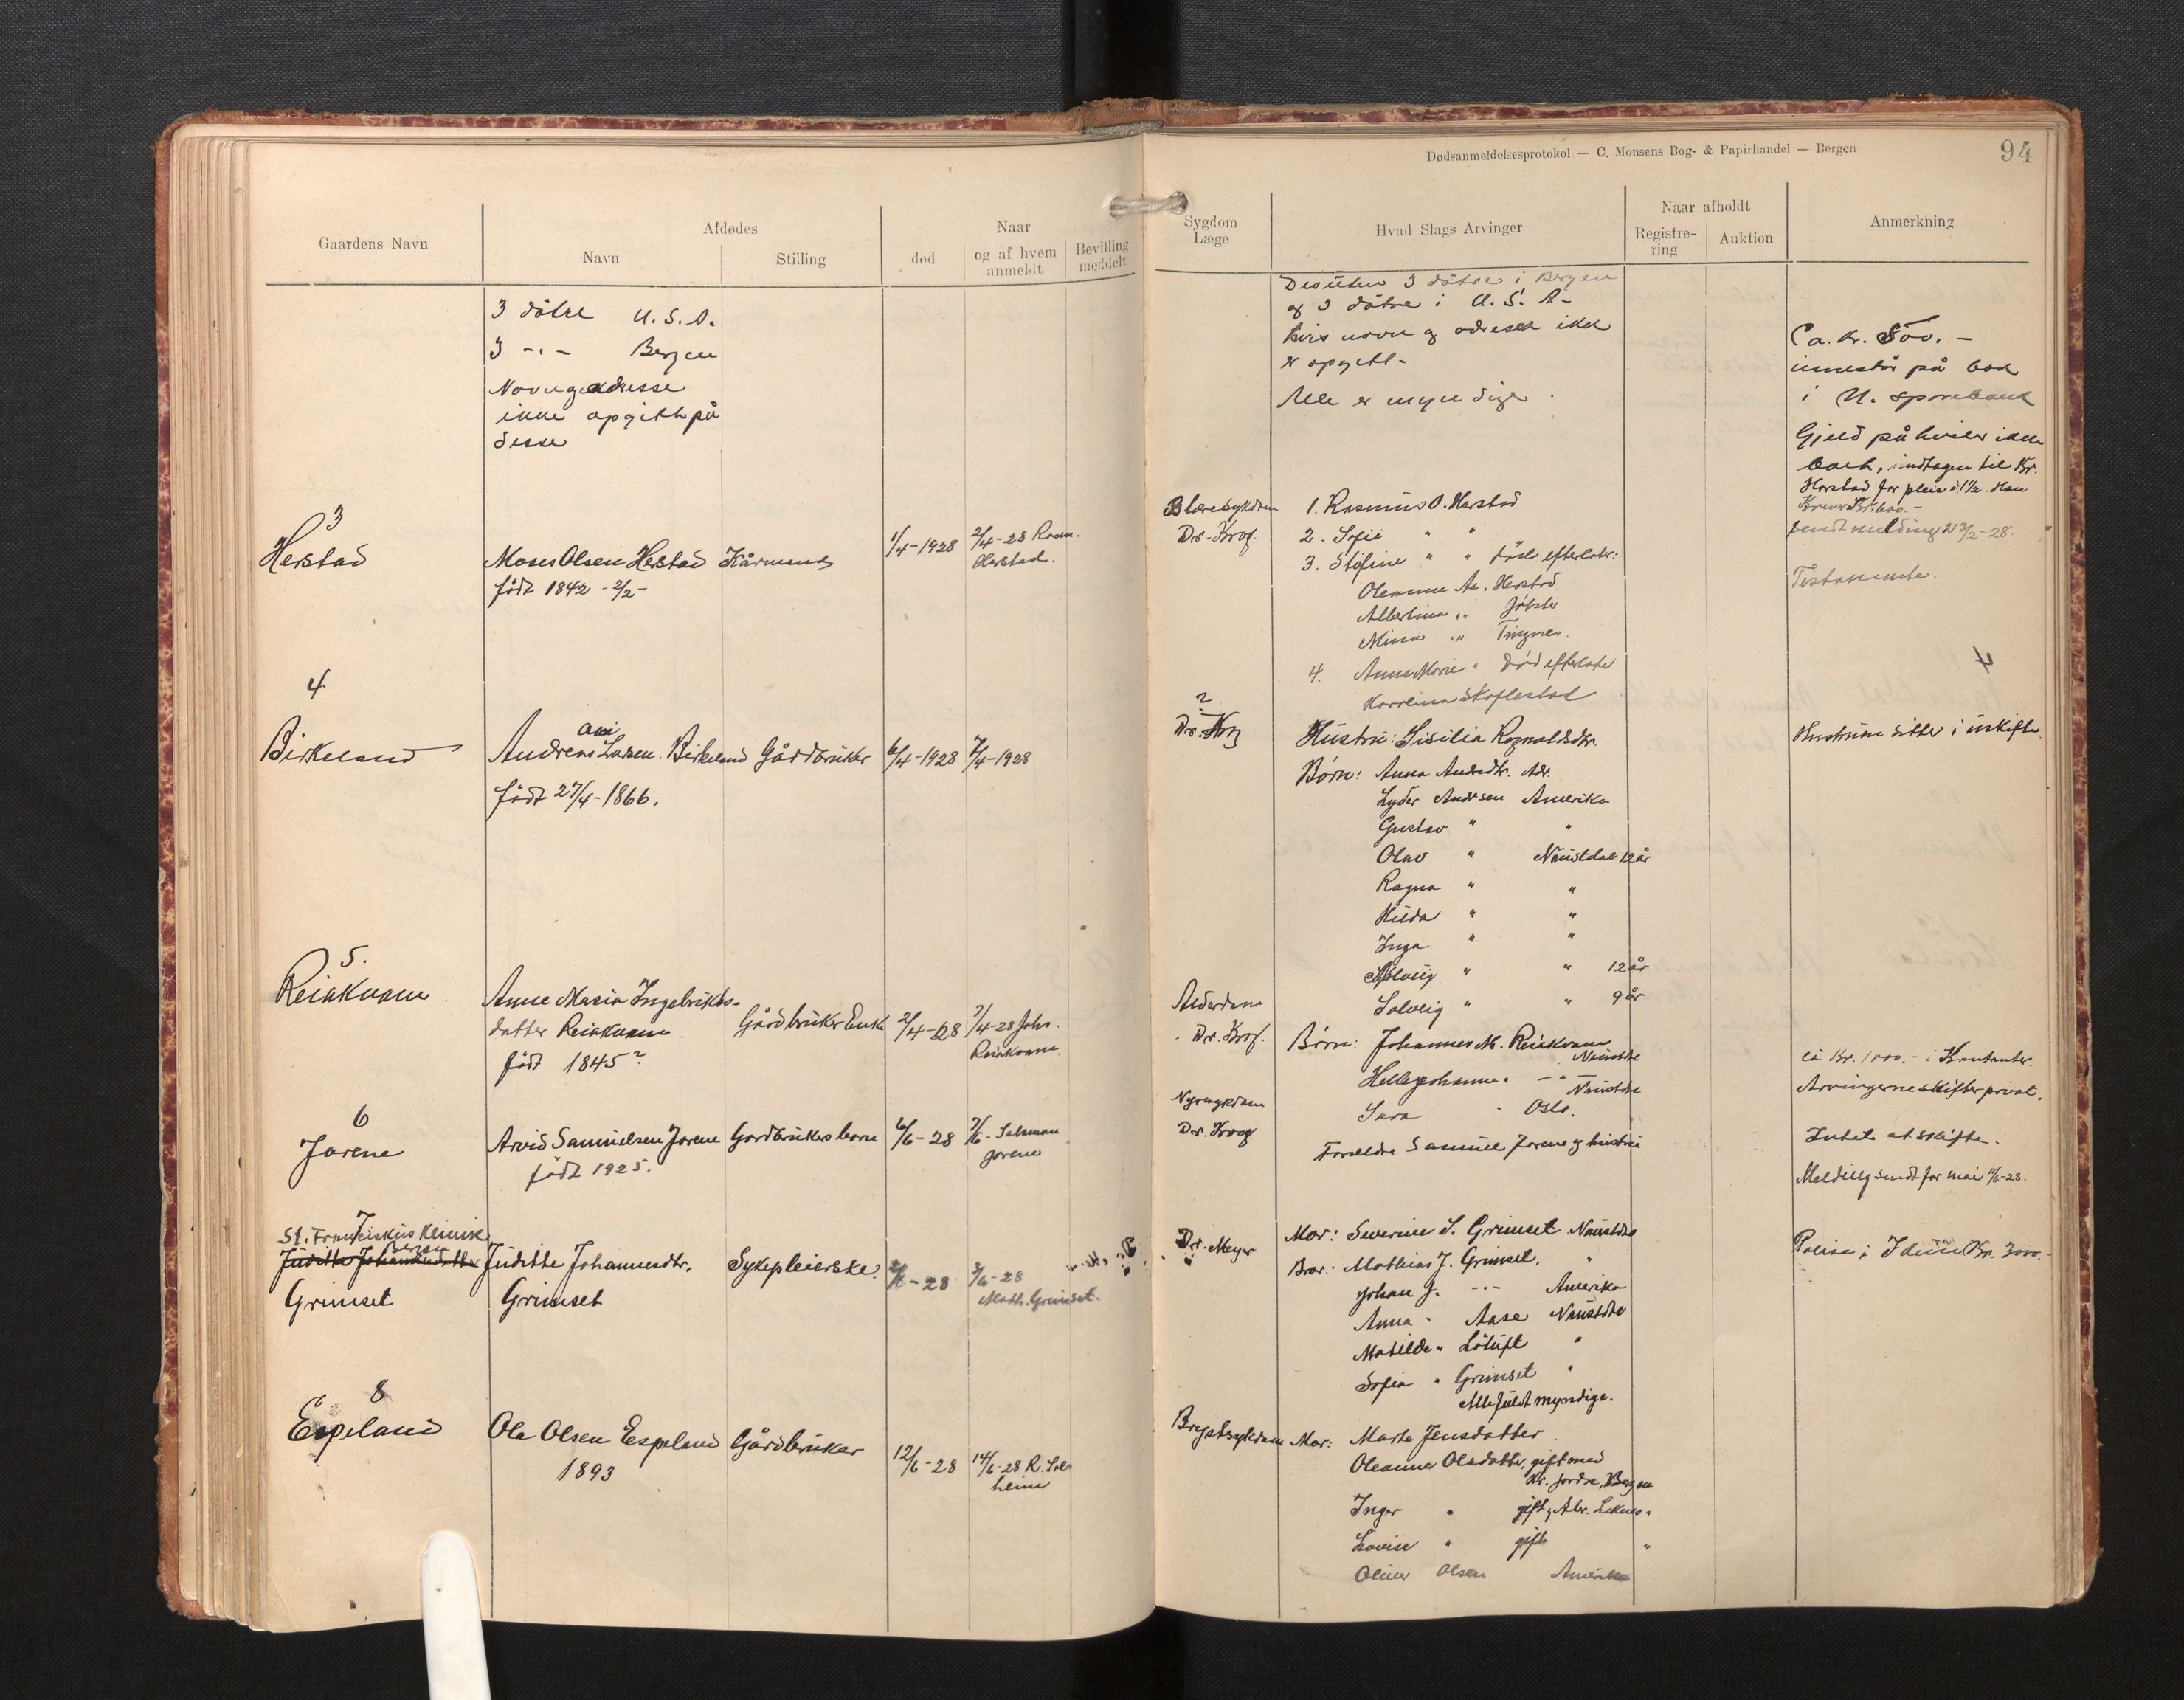 Dødsanmeldelsesprotokol — C. Monsens Bog- & Papirhandel — Bergen
94
Gaardens Navn
Afdødes
Navn
Stilling
Naar
død
og af hvem anmeldt
Bevilling meddelt
Sygdom
Læge
Hvad Slags Arvinger
Naar afholdt
Registre-
ring
Auktion
Anmerkning
3 døtre U.S.A.
3 -"- Bergen
Navn og adresse
ikke opgitt på
disse
Desuten 3 døtre i Bergen
og 3 døtre i U.S.A-
hvis navn og adresse ikke
er opgitt-
Alle er myndige
Ca. kr. 800.-
innestår på bok
i N. sparebank
Gjeld påhviler ikke
3
Herstad
Moses Olsen Herstad
født 1842 - 2/2 -
Kårmand
1/4-1928
2/4-28 Rasm.
Herstad.
Blæresykdom
Dr. Krog.
1. Rasmus O. Herstad
2. Sofie " "
3. Stefine " " død efterlater:
Olemine Aa. Herstad
Albertina " Jølster
Mina " Tingnes.
4. Anne Marie " død efterlater
Karolina Skaflestad
sendt melding
Testamente.
4
4
Birkeland
Andreas Larsen Birkeland
født 27/4-1866.
Gårdbruker
6/4-1928
7/4-1928
?
Dr. Krog
Hustru: Sisilia Ragnaldsdtr.
Børn: Anna Andrsdtr. Adr.
Lyder Andrsen Amerika
Gustav " "
Olav " Naustdal 12 år
Ragna " "
Hilda " "
Inga " "
Solveig " " 12 år
Solveig " " 9 år
Hustruen sitter i uskifte
5.
Reiakvam
Anne Maria Ingebrikts-
datter Reiakvam
født 1845?
Gårdbruker Enke
2/4-28
7/4-28 Johs.
Reiakvam.
Alderdom
Dr. Krog.
Børn: Johannes M. Reiakvam
Naustdal
Helle Johanne " -"- Naustdal
Sara " Oslo.
ca Kr. 1000.- i Kontanter.
Arvingerne skifter privat.
6
Jorene
Arvid Samuelsen Jorene
født 1925.
Gardbrukers barn
6/6-28
7/6- Salamon
Jorene
Nyresykdom
Dr. Krog
Foreldre Samuel Jorene og hustru
Intet at skifte.
Melding sendt for mai 11/6-28.
7
St. Franciskus Klinik
Bergen
Juditte Johannesdatter
Grimset
Juditte Johannesdtr.
Grimset
Sykepleierske.
2/6-28
3/6-28
Math. Grimset.
Dr. Meyer
Mor: Severine S. Grimset Naustdal
Bror: Mathias J. Grimset. "
Johan J. -"- Amerika
Anna " Aase Naustdal
Matilde " Løtuft "
Sofia " Grimset "
Alle fuldt myndige.
Polise i Idun Kr. 3000.-
8
Espeland
Ole Olsen Espeland
1893
Gårdbruker
12/6-28
14/6-28 R. Sol-
heim
Brystsykdom
Mor: Marta Jensdatter
Oleanna Olsdatter, gift med
Kr. Jordre, Bergen
Inger " gift, Abr. Leknes "
Lovise " gift "
Oliver Olsen Amerika